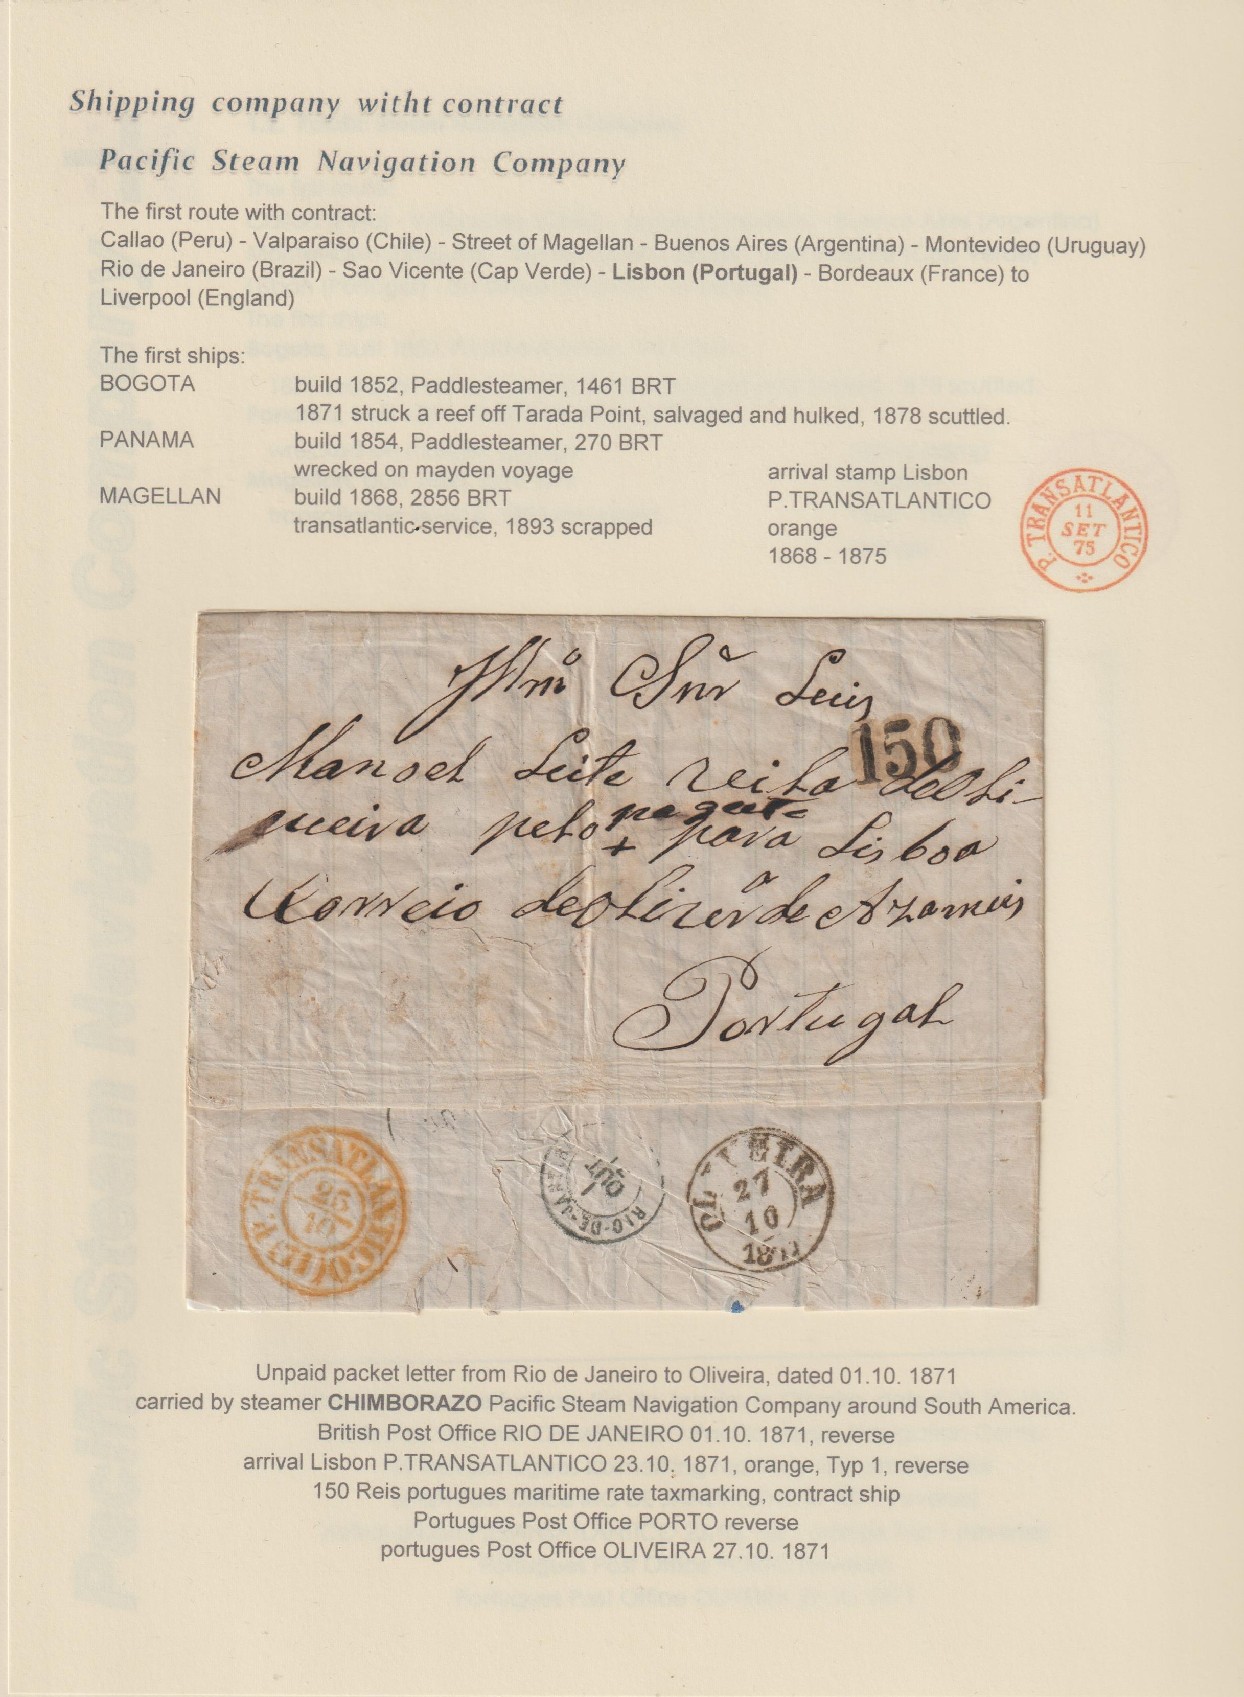 Shipping company witht contract
Pacific Steam Navigation Company
The first route with contract:
Callao (Peru) - Valparaiso (Chile) - Street of Magellan - Buenos Aires (Argentina) - Montevideo (Uruguay)
Rio de Janeiro (Brazil) - Sao Vicente (Cap Verde) - Lisbon (Portugal) - Bordeaux (France) to
Liverpool (England)
The first ships:
BOGOTA build 1852, Paddlesteamer, 1461 BRT
1871 struck a reef off Tarada Point, salvaged and hulked, 1878 scuttled.
PANAMA build 1854, Paddlesteamer, 270 BRT
wrecked on mayden voyage
MAGELLAN build 1868, 2856 BRT
transatlantic-service, 1893 scrapped
arrival stamp Lisbon
P.TRANSATLANTICO
orange
1868 - 1875
P. TRANSATLANTICO
11
SET
75
Illmº Snr Luis
150
Manoel Leite
pelo para Lisboa
Correio de Azameis
Portugal
P. TRANSATLANTICO
10
RIO-DE-JANEIRO
1
OUT
OLIVEIRA
27
10
1871
Unpaid packet letter from Rio de Janeiro to Oliveira, dated 01.10. 1871
carried by steamer CHIMBORAZO Pacific Steam Navigation Company around South America.
British Post Office RIO DE JANEIRO 01.10. 1871, reverse
arrival Lisbon P.TRANSATLANTICO 23.10. 1871, orange, Typ 1, reverse
150 Reis portugues maritime rate taxmarking, contract ship
Portugues Post Office PORTO reverse
portugues Post Office OLIVEIRA 27.10. 1871